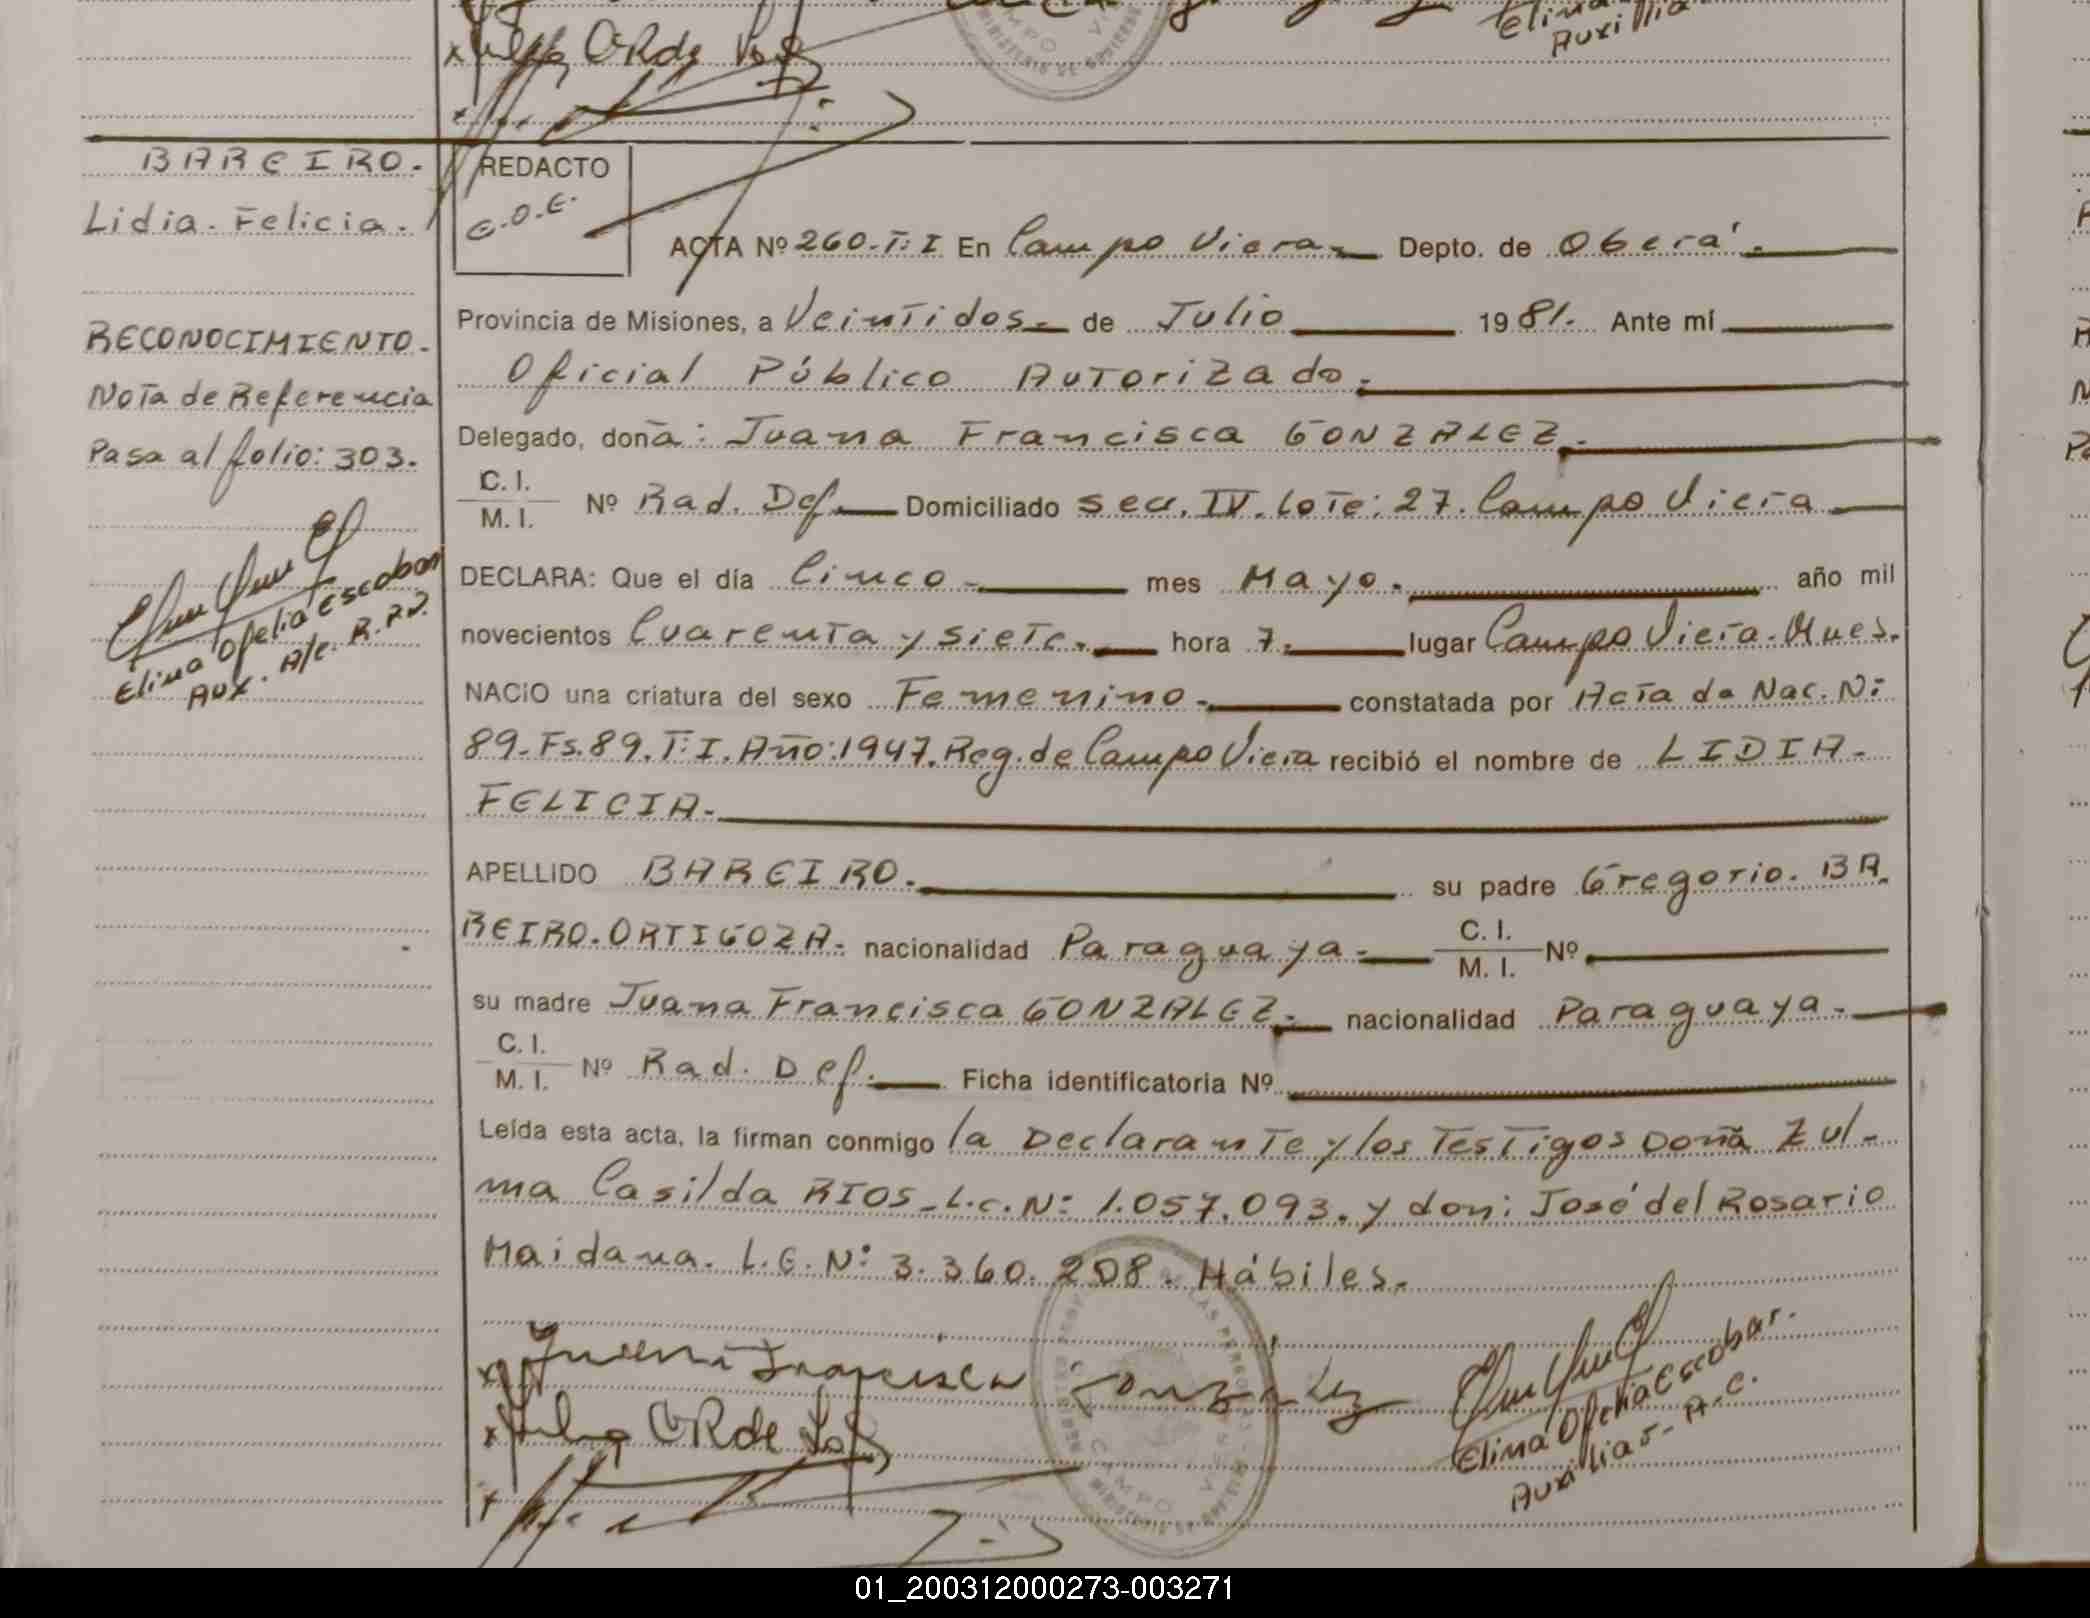 Elina
Auxillia
BAREIRO.
Lidia. Felicia.
RECONOCIMIENTO.
Nota de Referencia
Pasa al folio: 303.
Elina Ofelia Escobar
Aux. A/c. R.
REDACTO
E.O.E.
ACTA Nº 260.T:I En Campo Viera Depto. de Oberá.
Provincia de Misiones, a Veintidos. de Julio 1981. Ante mí
Oficial Público Autorizado.
Delegado, doña: Juana Francisca GONZALEZ.
C. I.
M. I. Nº Rad. Def. Domiciliado secc. IV. Lote: 27. Campo Viera
DECLARA: Que el día Cinco. mes Mayo. año mil
novecientos Cuarenta y siete. hora 7. lugar Campo Viera. Mnes.
NACIO una criatura del sexo Femenino. constatada por Acta de Nac. N:
89. Fs. 89. T: I. Año: 1947. Reg. de Campo Viera recibió el nombre de LIDIA-
FELICIA.
APELLIDO BAREIRO. su padre Gregorio. BA.
REIRO. ORTIGOZA. nacionalidad Paraguaya. C. I.
M. I. Nº
su madre Juana Francisca GONZALEZ. nacionalidad Paraguaya.
C. I.
M. I. Nº Rad. Def. Ficha identificatoria Nº
Leída esta acta, la firman conmigo la Declarante y los Testigos Doña Zul-
ma Casilda RIOS- L.C. N: 1.057.093. y don: José del Rosario
Maidana. L.E. N: 3.360.208. Hábiles.
Juana Francisca Gonzalez
Elina Ofelia Escobar.
Auxiliar- A.C.
CAMPO
01_200312000273-003271